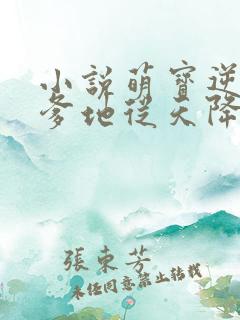 小說萌寶逆
爹地從天降
張東芳
未經同意禁止轉載